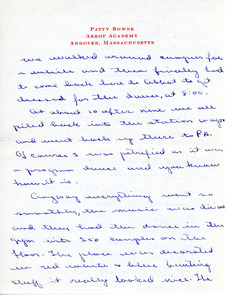 PATTY BOWNE
ABBOT ACADEMY
ANDOVER, MASSACHUSETTS
we walked around campus for
a while and then finally had
to come back here to Abbot to get
dressed for the dance, at 8:00.
At about 10 after nine we all
piled back into the station wagon
and went back up there to P.A.
Of course I was petrified as it was
a program dance and you know
how it is.
Anyway everything went so
smoothly, the music was divine
and they had the dance in the
gym with 250 couples on the
floor. The place was decorated
in red white & blue bunting
stuff it really looked nice. The